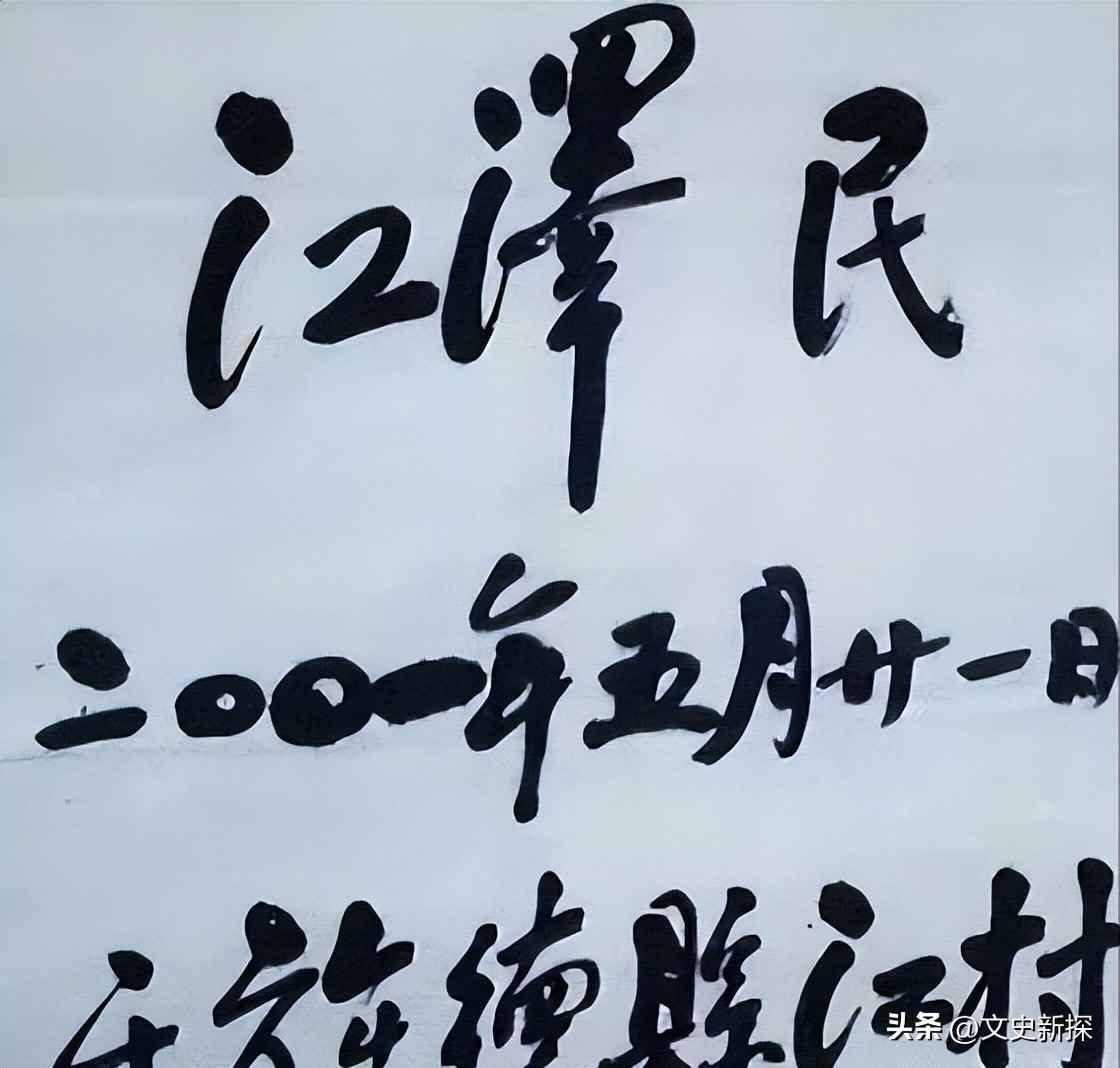 江澤民
二〇〇一年五月廿一日
于旌德縣江村
头条 @文史新探